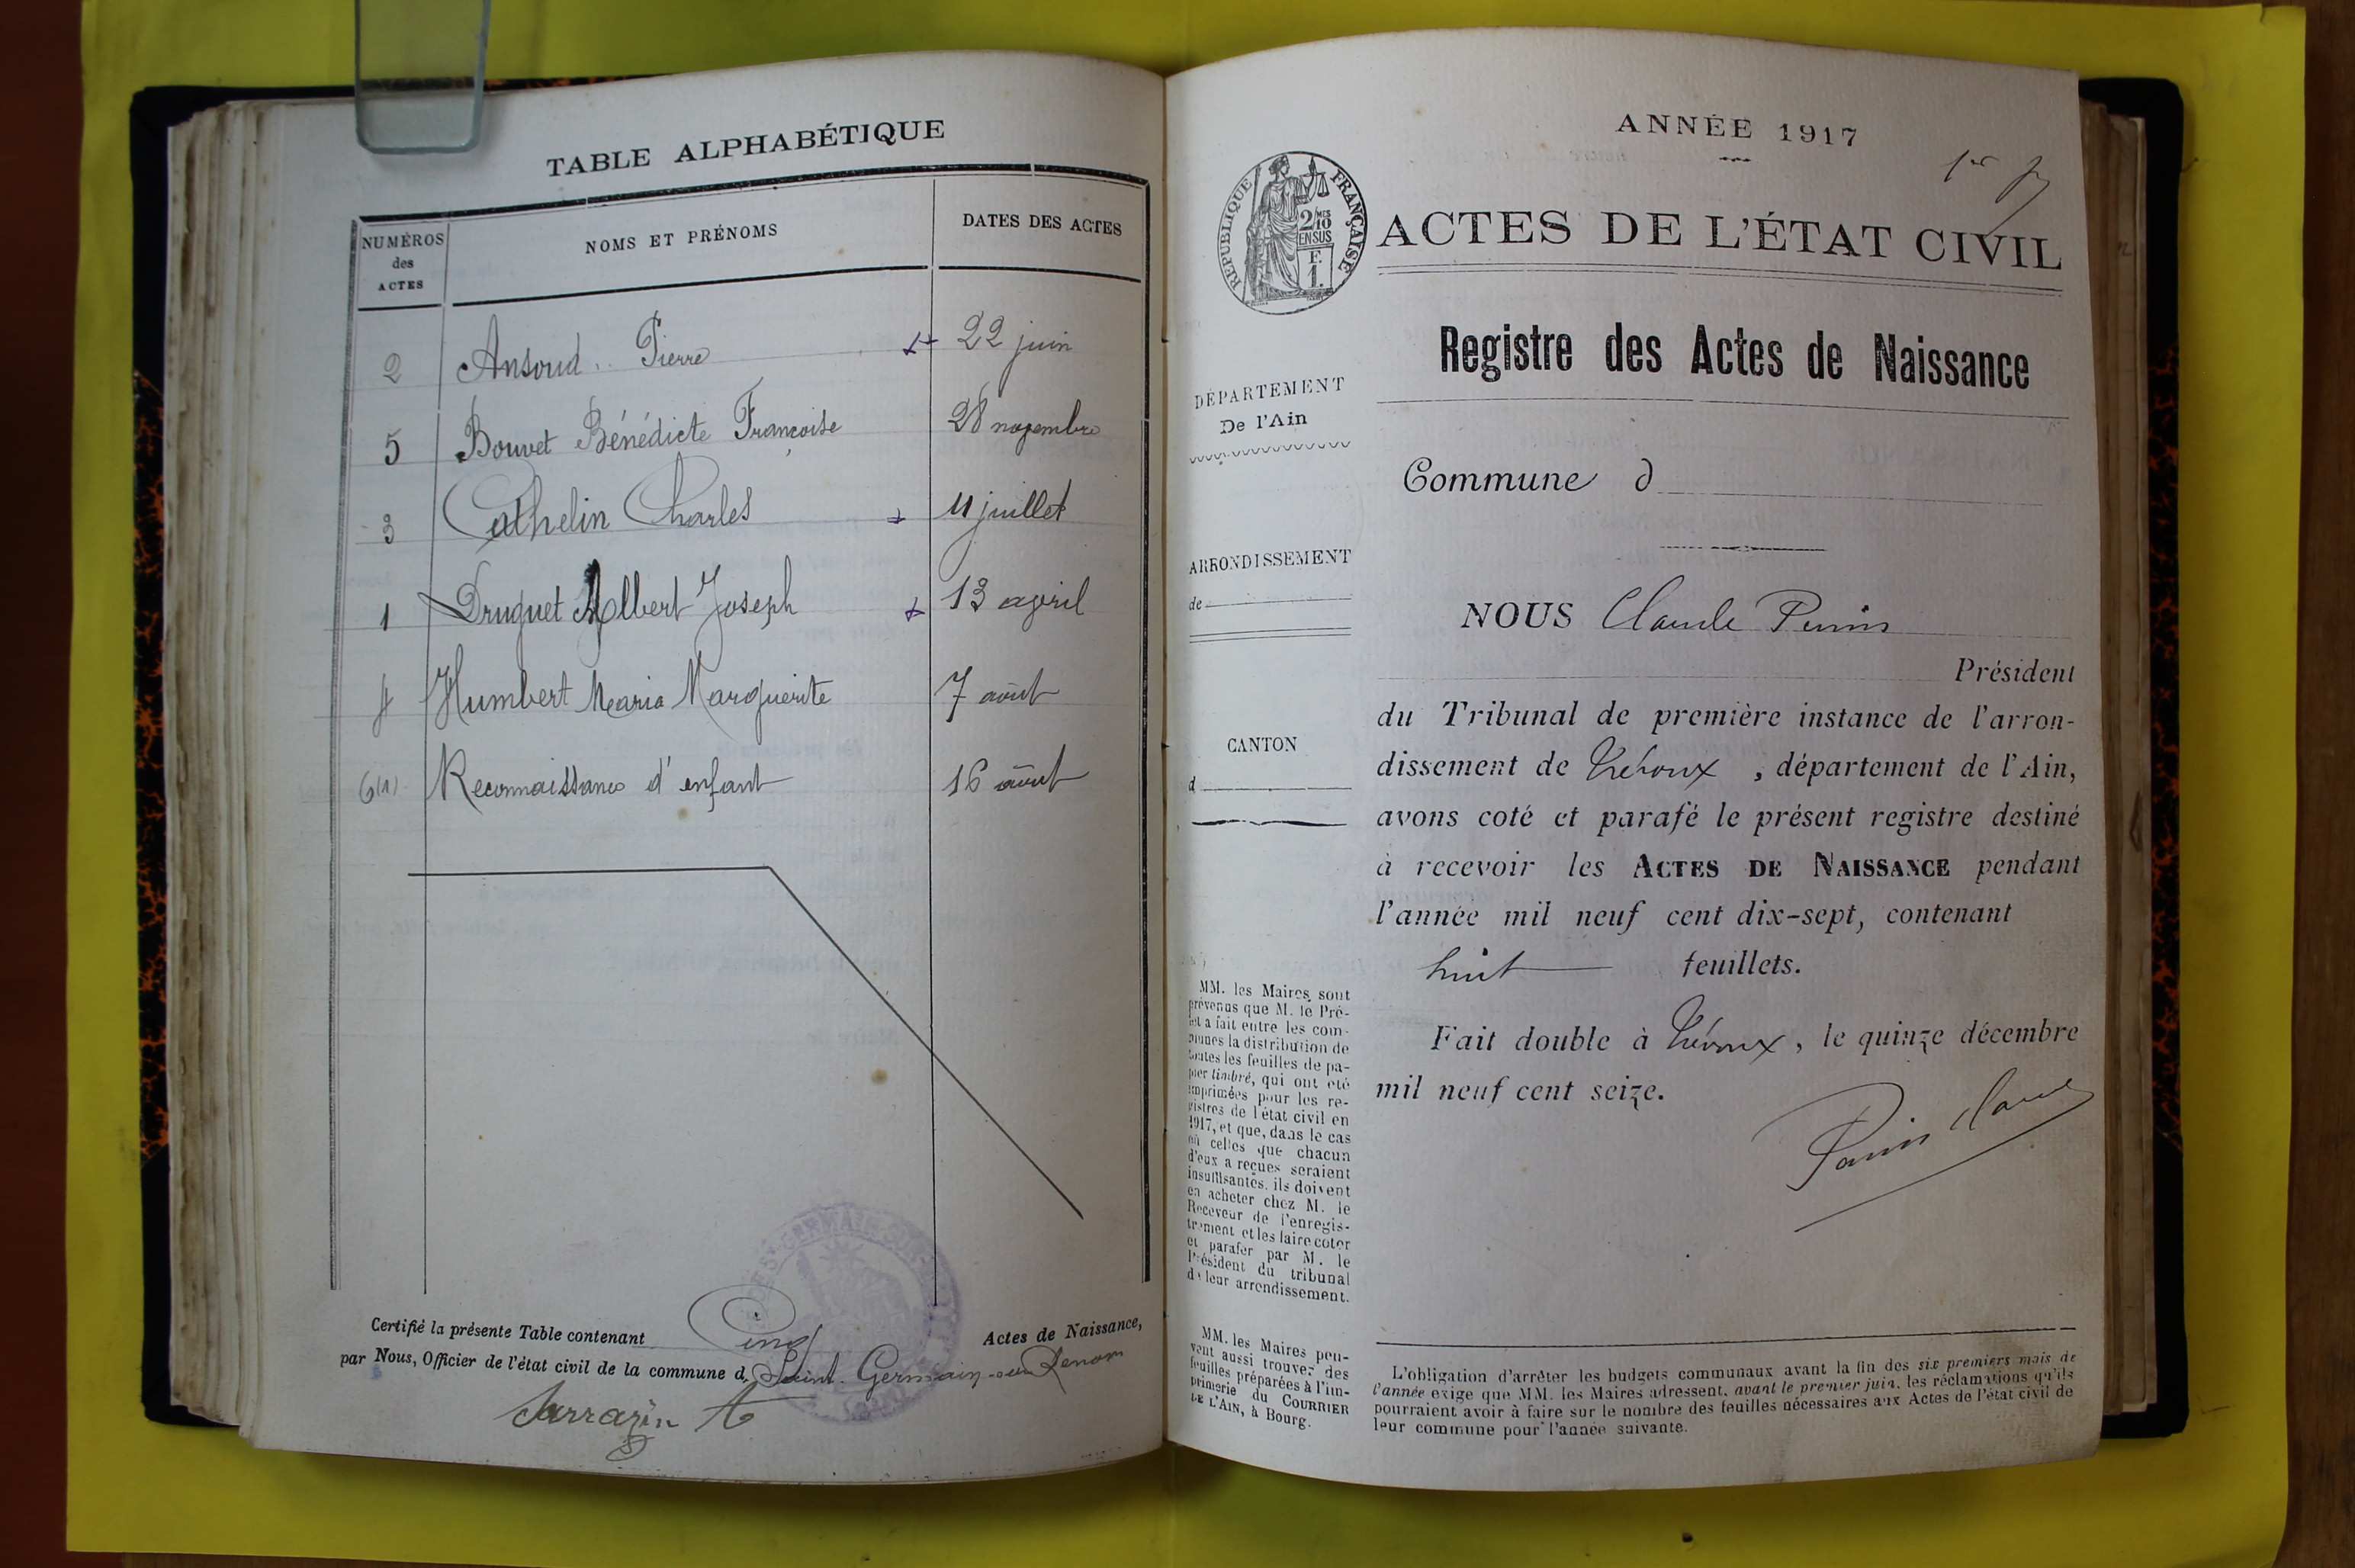 TABLE ALPHABÉTIQUE
NUMÉROS des ACTES
NOMS ET PRÉNOMS
DATES DES ACTES
2 Ansoud Pierre 22 juin
5 Bouvet Bénédicte Françoise 28 novembre
3 Cathelin Charles 11 juillet
1 Druguet Albert Joseph 13 avril
4 Humbert Maria Marguerite 7 août
6(1) Reconnaissance d'enfant 16 août
Certifié la présente Table contenant Cinq Actes de Naissance,
par Nous, Officier de l'état civil de la commune d Saint-Germain-sur-Renom
Sarrazin A
ANNÉE 1917
1er
RÉPUBLIQUE FRANÇAISE
2/10
EN SUS
F.
1.
ACTES DE L'ÉTAT CIVIL
Registre des Actes de Naissance
DÉPARTEMENT
De l'Ain
ARRONDISSEMENT
de
CANTON
d
MM. les Maires sont
prévenus que M. le Pré-
fet a fait entre les com-
munes la distribution de
toutes les feuilles de pa-
pier timbré, qui ont été
imprimées pour les re-
gistres de l'état civil en
1917, et que, dans le cas
où celles que chacun
d'eux a reçues seraient
insuffisantes, ils doivent
en acheter chez M. le
Receveur de l'enregis-
trement et les faire coter
et parafer par M. le
Président du tribunal
de leur arrondissement.
MM. les Maires peu-
vent aussi trouver des
feuilles préparées à l'im-
primerie du COURRIER
DE L'AIN, à Bourg.
Commune d
NOUS Claude Perrin
Président
du Tribunal de première instance de l'arron-
dissement de Trévoux, département de l'Ain,
avons coté et parafé le présent registre destiné
à recevoir les ACTES DE NAISSANCE pendant
l'année mil neuf cent dix-sept, contenant
huit feuillets.
Fait double à Trévoux, le quinze décembre
mil neuf cent seize.
L'obligation d'arrêter les budgets communaux avant la fin des six premiers mois de
l'année exige que MM. les Maires adressent, avant le premier juin, les réclamations qu'ils
pourraient avoir à faire sur le nombre des feuilles nécessaires aux Actes de l'état civil de
leur commune pour l'année suivante.